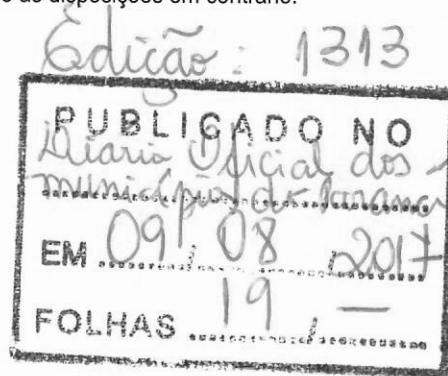 as disposições em contrário.
Edição: 1313
PUBLICADO NO
Diario Oficial dos
municípios do Paraná
EM 09, 08, 2017
FOLHAS 19, —